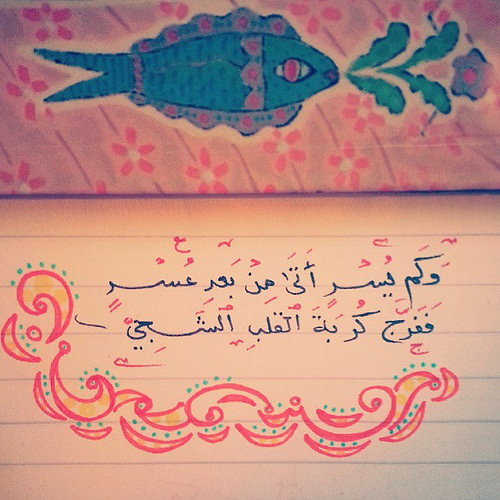 وَكَم يُسْرٍ أَتَىٰ مِنْ بَعدِ عُسْرٍ
فَفَرَّجَ كُربَةَ القَلبِ الشَّجِيِّ